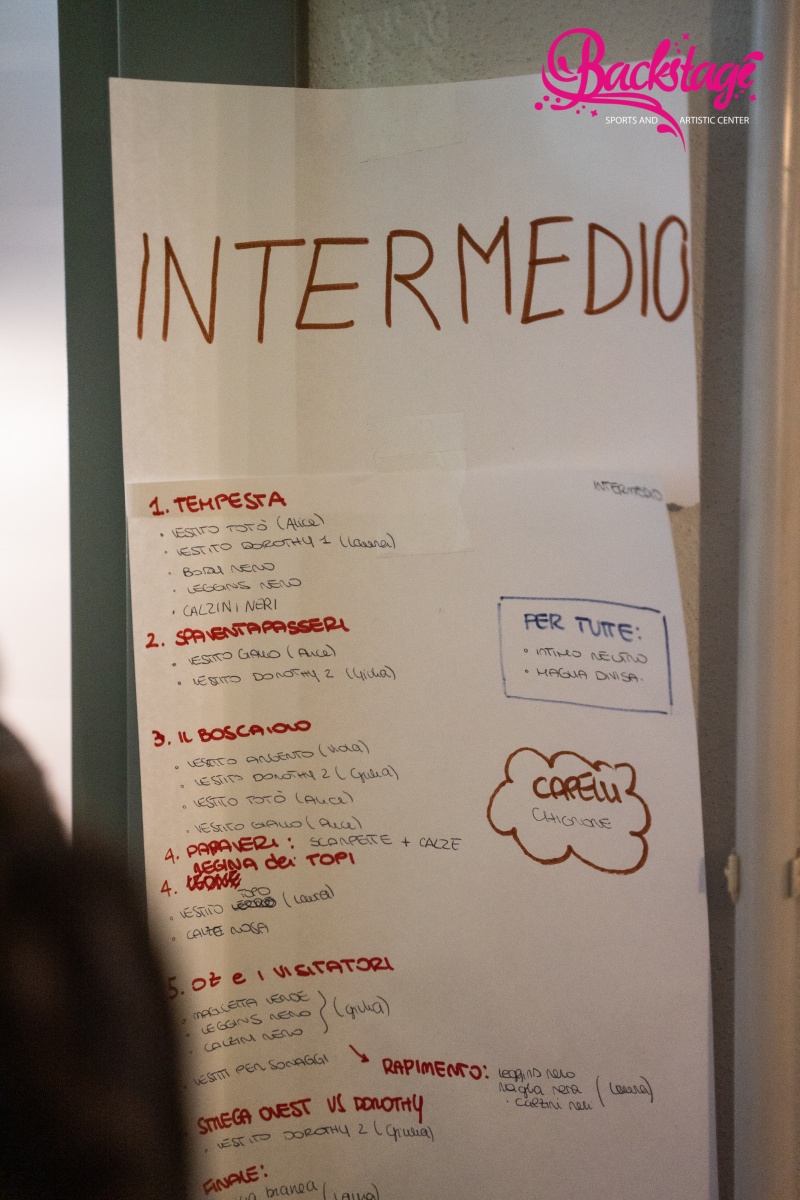 Backstage
SPORTS AND ARTISTIC CENTER
INTERMEDIO
INTERMEDIO
1. TEMPESTA
• VESTITO TOTÒ (Alice)
• VESTITO DOROTHY 1 (Laura)
• BODY NERO
• LEGGINS NERO
• CALZINI NERI
PER TUTTE:
• INTIMO NEUTRO
• MAGLIA DIVISA.
2. SPAVENTAPASSERI
• VESTITO GIALLO (Alice)
• VESTITO DOROTHY 2 (Giulia)
3. IL BOSCAIOLO
• VESTITO ARGENTO (Viola)
• VESTITO DOROTHY 2 (Giulia)
• VESTITO TOTÒ (Alice)
• VESTITO GIALLO (Alice)
CAPELLI
CHIGNONE
4. PAPAVERI: SCARPETTE + CALZE
REGINA dei TOPI
4. LEONE
TOPO
• VESTITO (Laura)
• CALZE ROSA
5. OZ e I VISITATORI
• MAGLIETTA VERDE
• LEGGINS NERO
• CALZINI NERO
(Giulia)
VESTITI PERSONAGGI
RAPIMENTO: leggins nero
maglia nera
• calzini neri
(Laura)
STREGA OVEST VS DOROTHY
• VESTITO DOROTHY 2 (Giulia)
FINALE:
bianca (Laura)